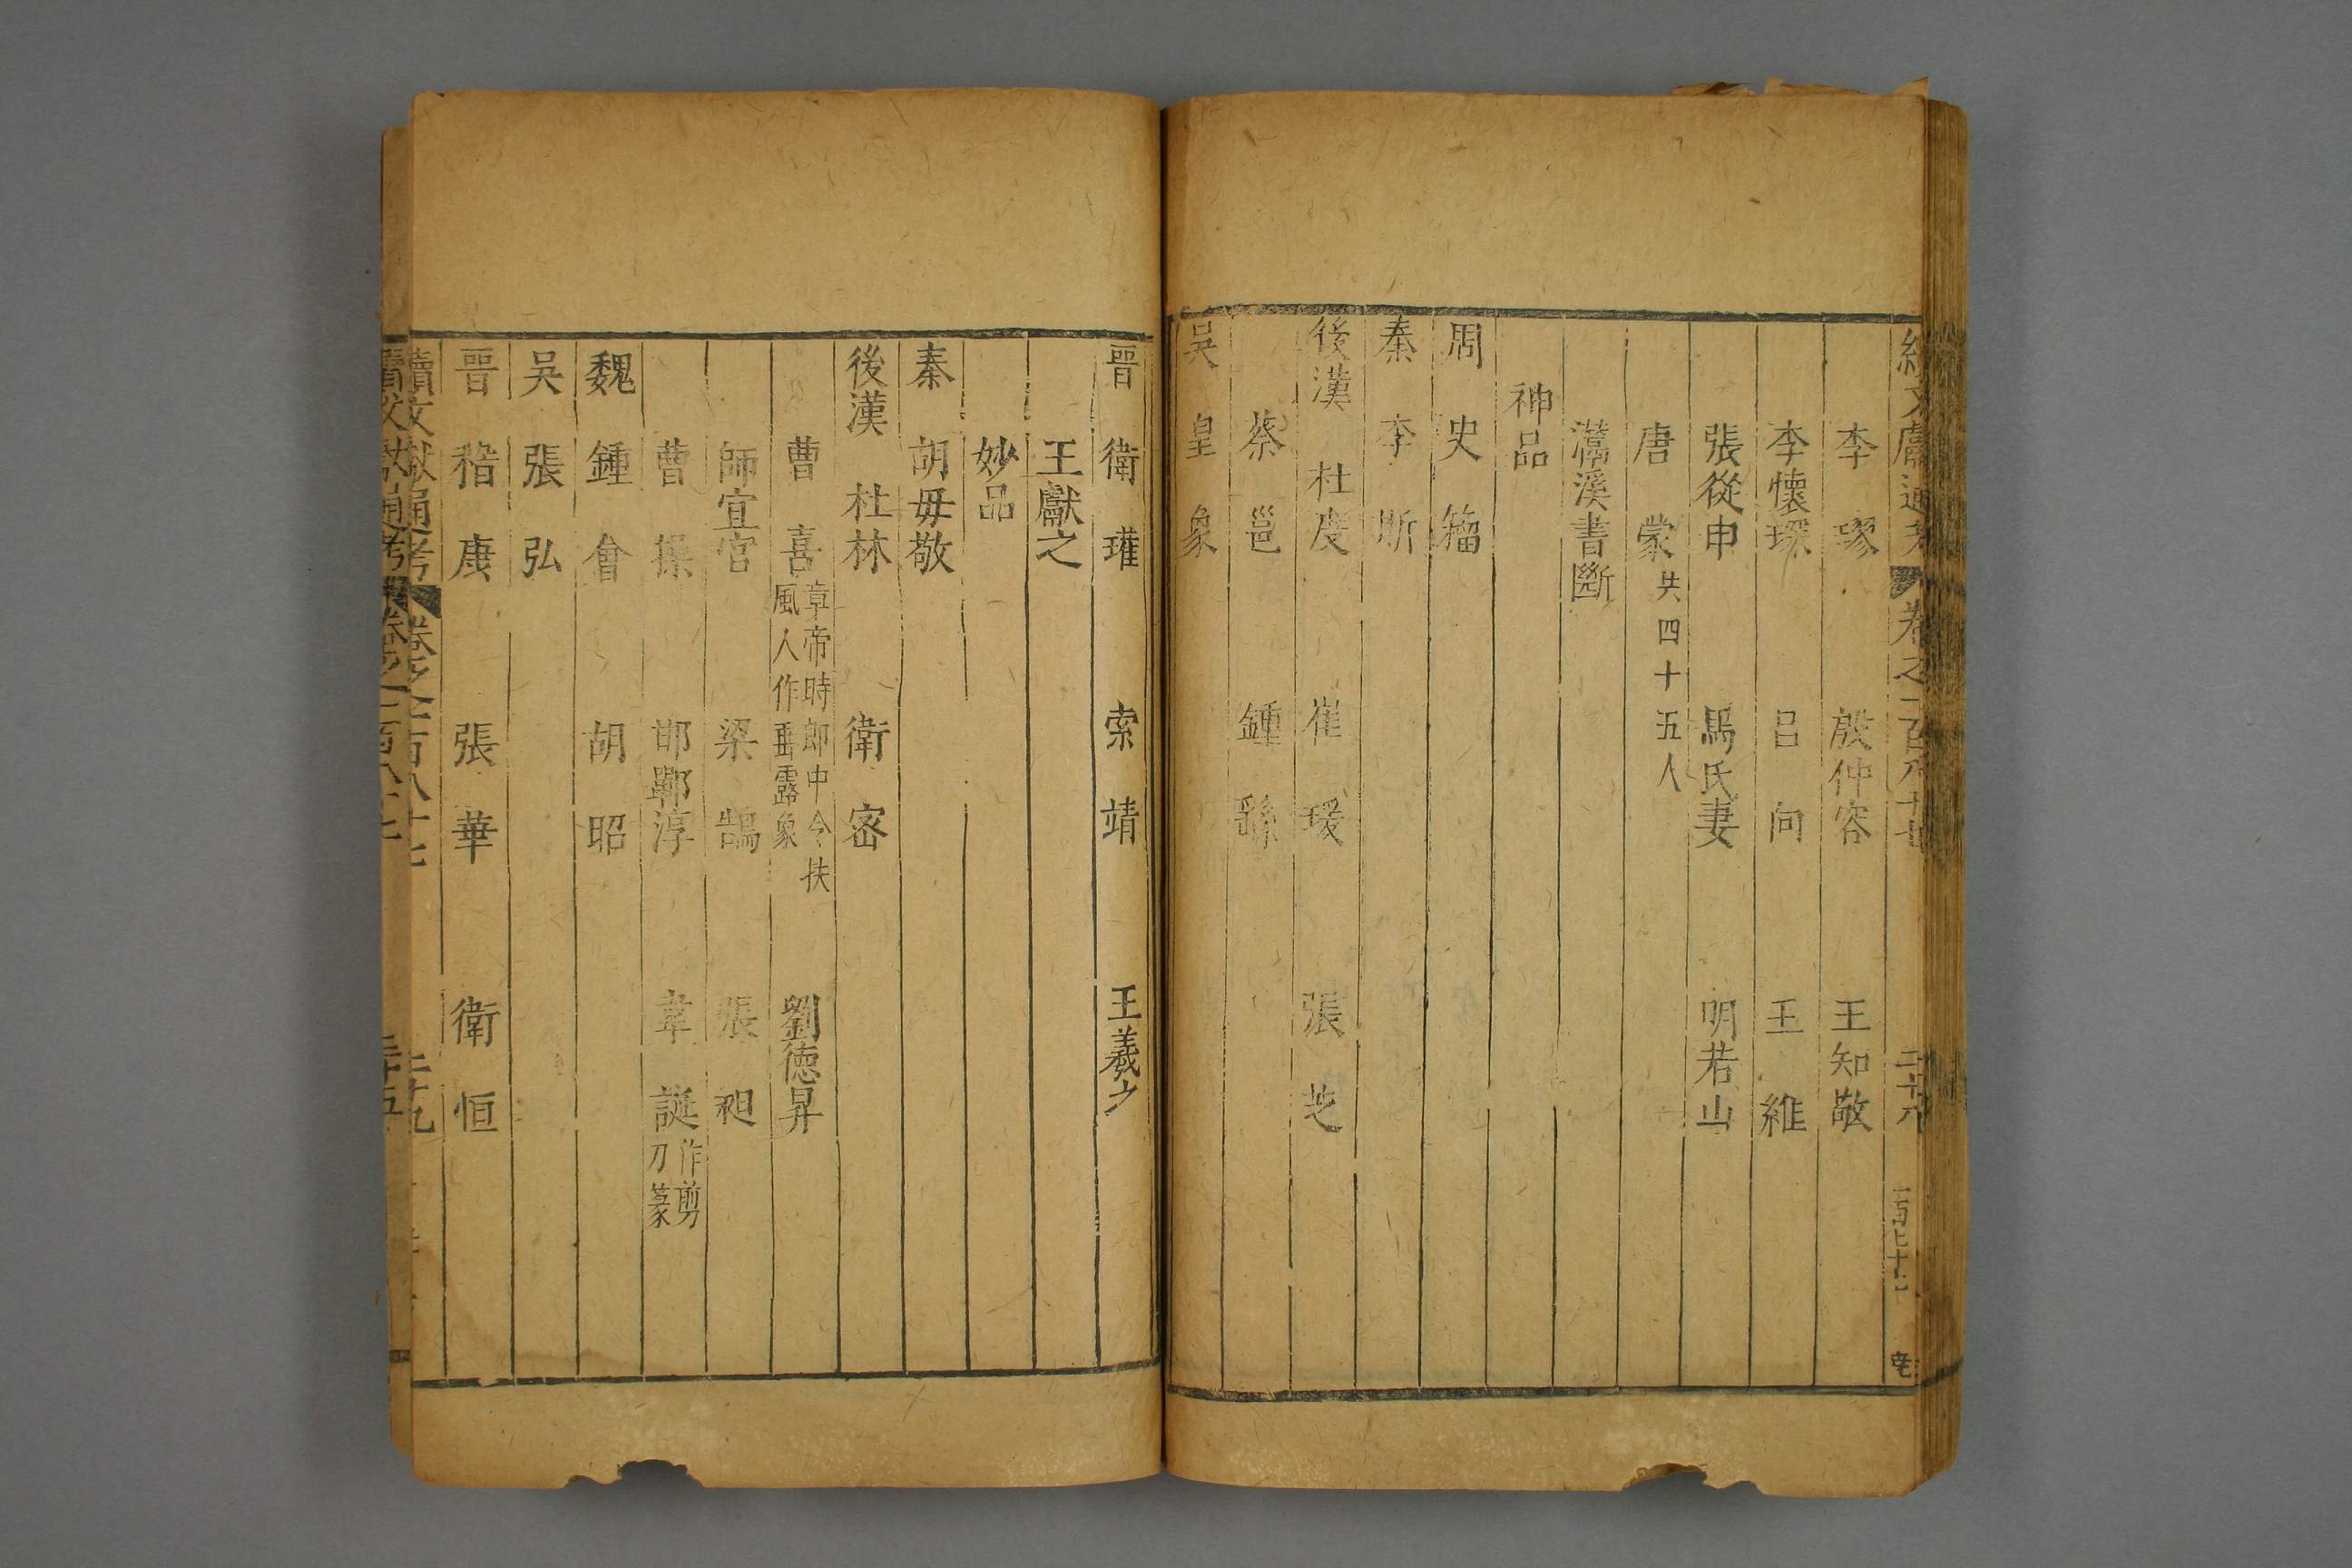 續文獻通考 卷之一百八十七 二十八
李璆 殷仲容 王知敬
李懷琛 呂向 王維
張從申 馬氏妻 明若山
唐蒙 共四十五人
濡溪書斷
神品
周 史籀
秦 李斯
後漢 杜度 崔瑗 張芝
蔡邕 鍾繇
吳 皇象
晉 衛瓘 索靖 王羲之
王獻之
妙品
秦 胡毋敬
後漢 杜林 衛宻
曹喜 章帝時郎中令扶
風人作垂露象 劉德昇
師宜官 梁鵠 張昶
曹操 邯鄲淳 韋誕 作剪
刀篆
魏 鍾會 胡昭
吳 張弘
晉 嵇康 張華 衛恒
續文獻通考 卷之一百八十七 二十九